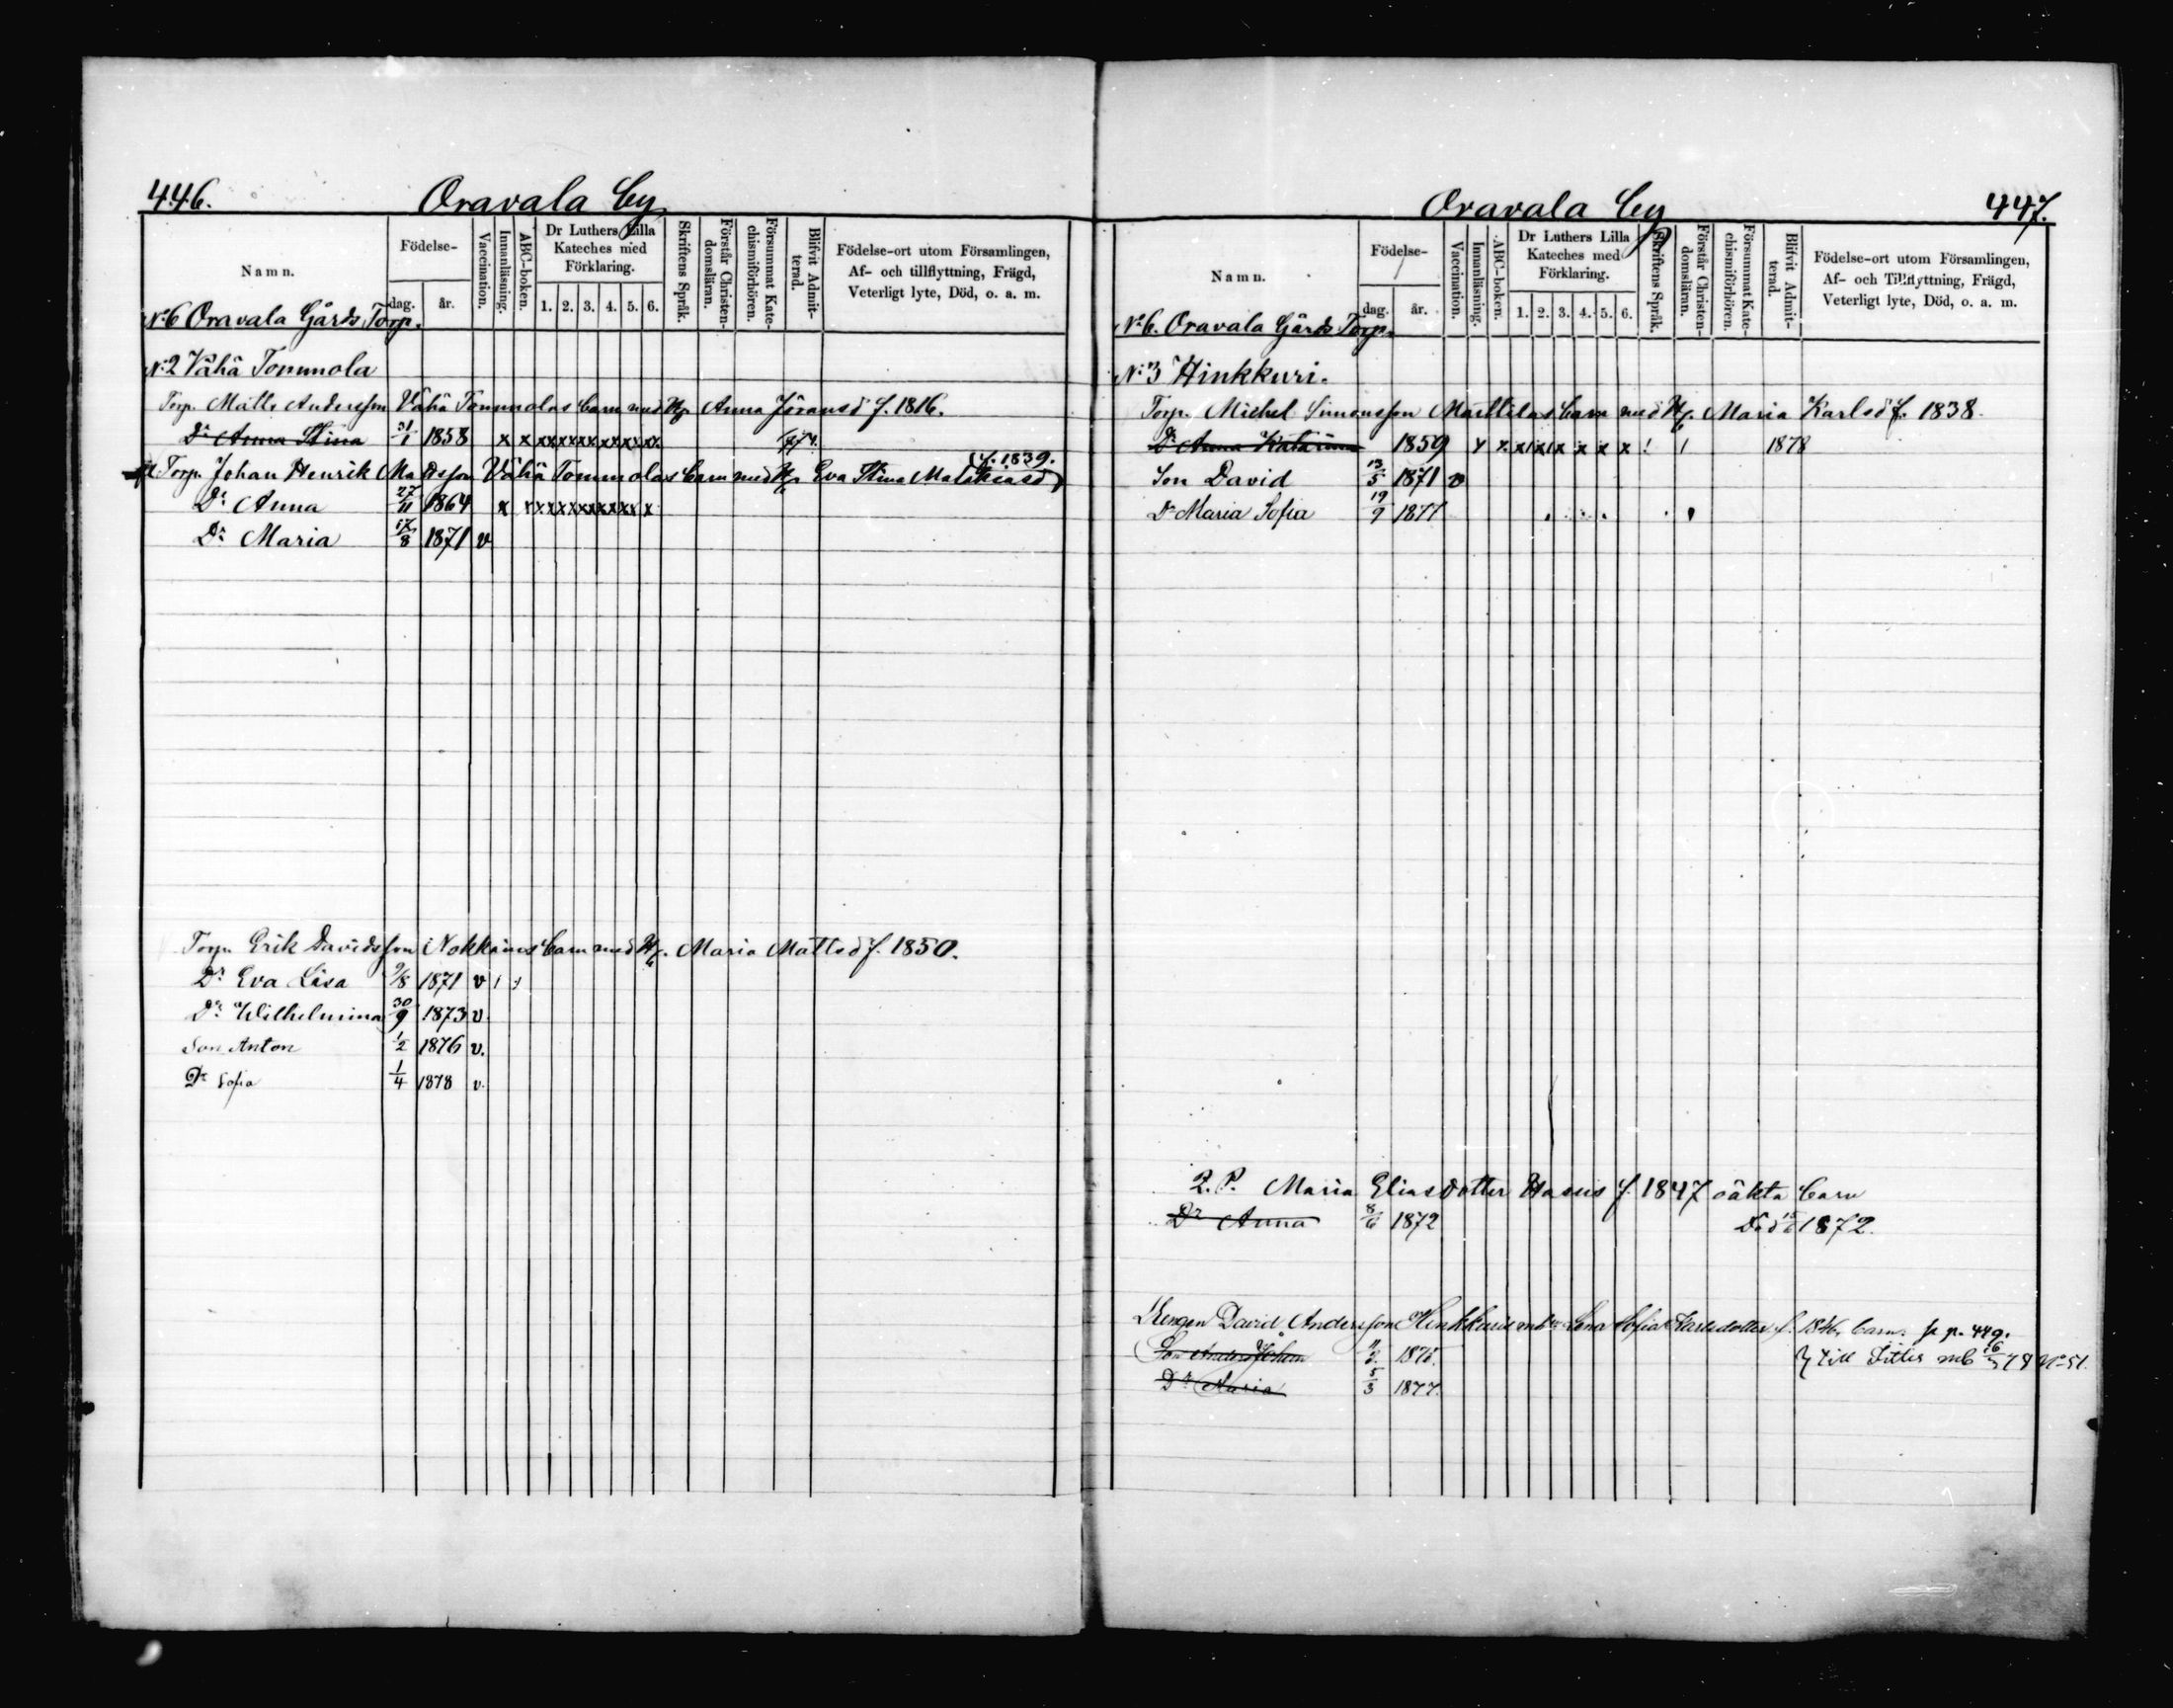 446. Oravala by
Namn. Födelse- dag. år. Vaccination. Innanläsning. ABC-boken. Dr Luthers Lilla Kateches med Förklaring. 1. 2. 3. 4. 5. 6. Skriftens Språk. Förstår Christendomsläran. Försummat Katechismiförhören. Blifvit Admitterad. Födelse-ort utom Församlingen, Af- och tillflyttning, Frägd, Veterligt lyte, Död, o. a. m.
No 6 Oravala Gårds Torp.
No 2 Vähä Tommola
Torp. Matts Andersson Vähä Tommolas barn med H. Anna Jöransd f. 1816.
Dr Anna Stina 31/1 1858 x x xxxxxxxxxxxx 74.
Torp. Johan Henrik Mattsson Vähä Tommolas barn med H. Eva Stina Malakiasd (f. 1839.)
Dr Anna 27/11 1864 x xxxxxxxxxxx x
Dr Maria 17/8 1871 v
Torp. Erik Davidsson Nokkains barn med H. Maria Mattsd f. 1850.
Dr Eva Lisa 9/8 1871 v
Dr Wilhelmina 30/9 1873 v.
Son Anton 1/2 1876 v.
Dr Sofia 1/4 1878 v.
Oravala by 447.
Namn. Födelse- dag. år. Vaccination. Innanläsning. ABC-boken. Dr Luthers Lilla Kateches med Förklaring. 1. 2. 3. 4. 5. 6. Skriftens Språk. Förstår Christendomsläran. Försummat Katechismiförhören. Blifvit Admitterad. Födelse-ort utom Församlingen, Af- och Tillflyttning, Frägd, Veterligt lyte, Död, o. a. m.
No 6. Oravala Gårds Torp.
No 3 Hinkkuri.
Torp. Michel Simonsson Marttilas barn med H. Maria Karlsd f. 1838.
Dr Anna Katarina 1859 x x x x x x x x 1878
Son David 13/5 1871 v
Dr Maria Sofia 19/9 1877
Q. P. Maria Eliasdotter Hasus f. 1847 oäkta barn
Dr Anna 8/6 1872 Död 15/6 1872.
Drengen David Andersson Hinkkuris m h Lena Sofia Karlsdotter f. 1846, barn. p. 449.
Son Anders Johan 1875. till Sitlis mb 16/3 78 No 51.
Dr Maria 5/3 1877.